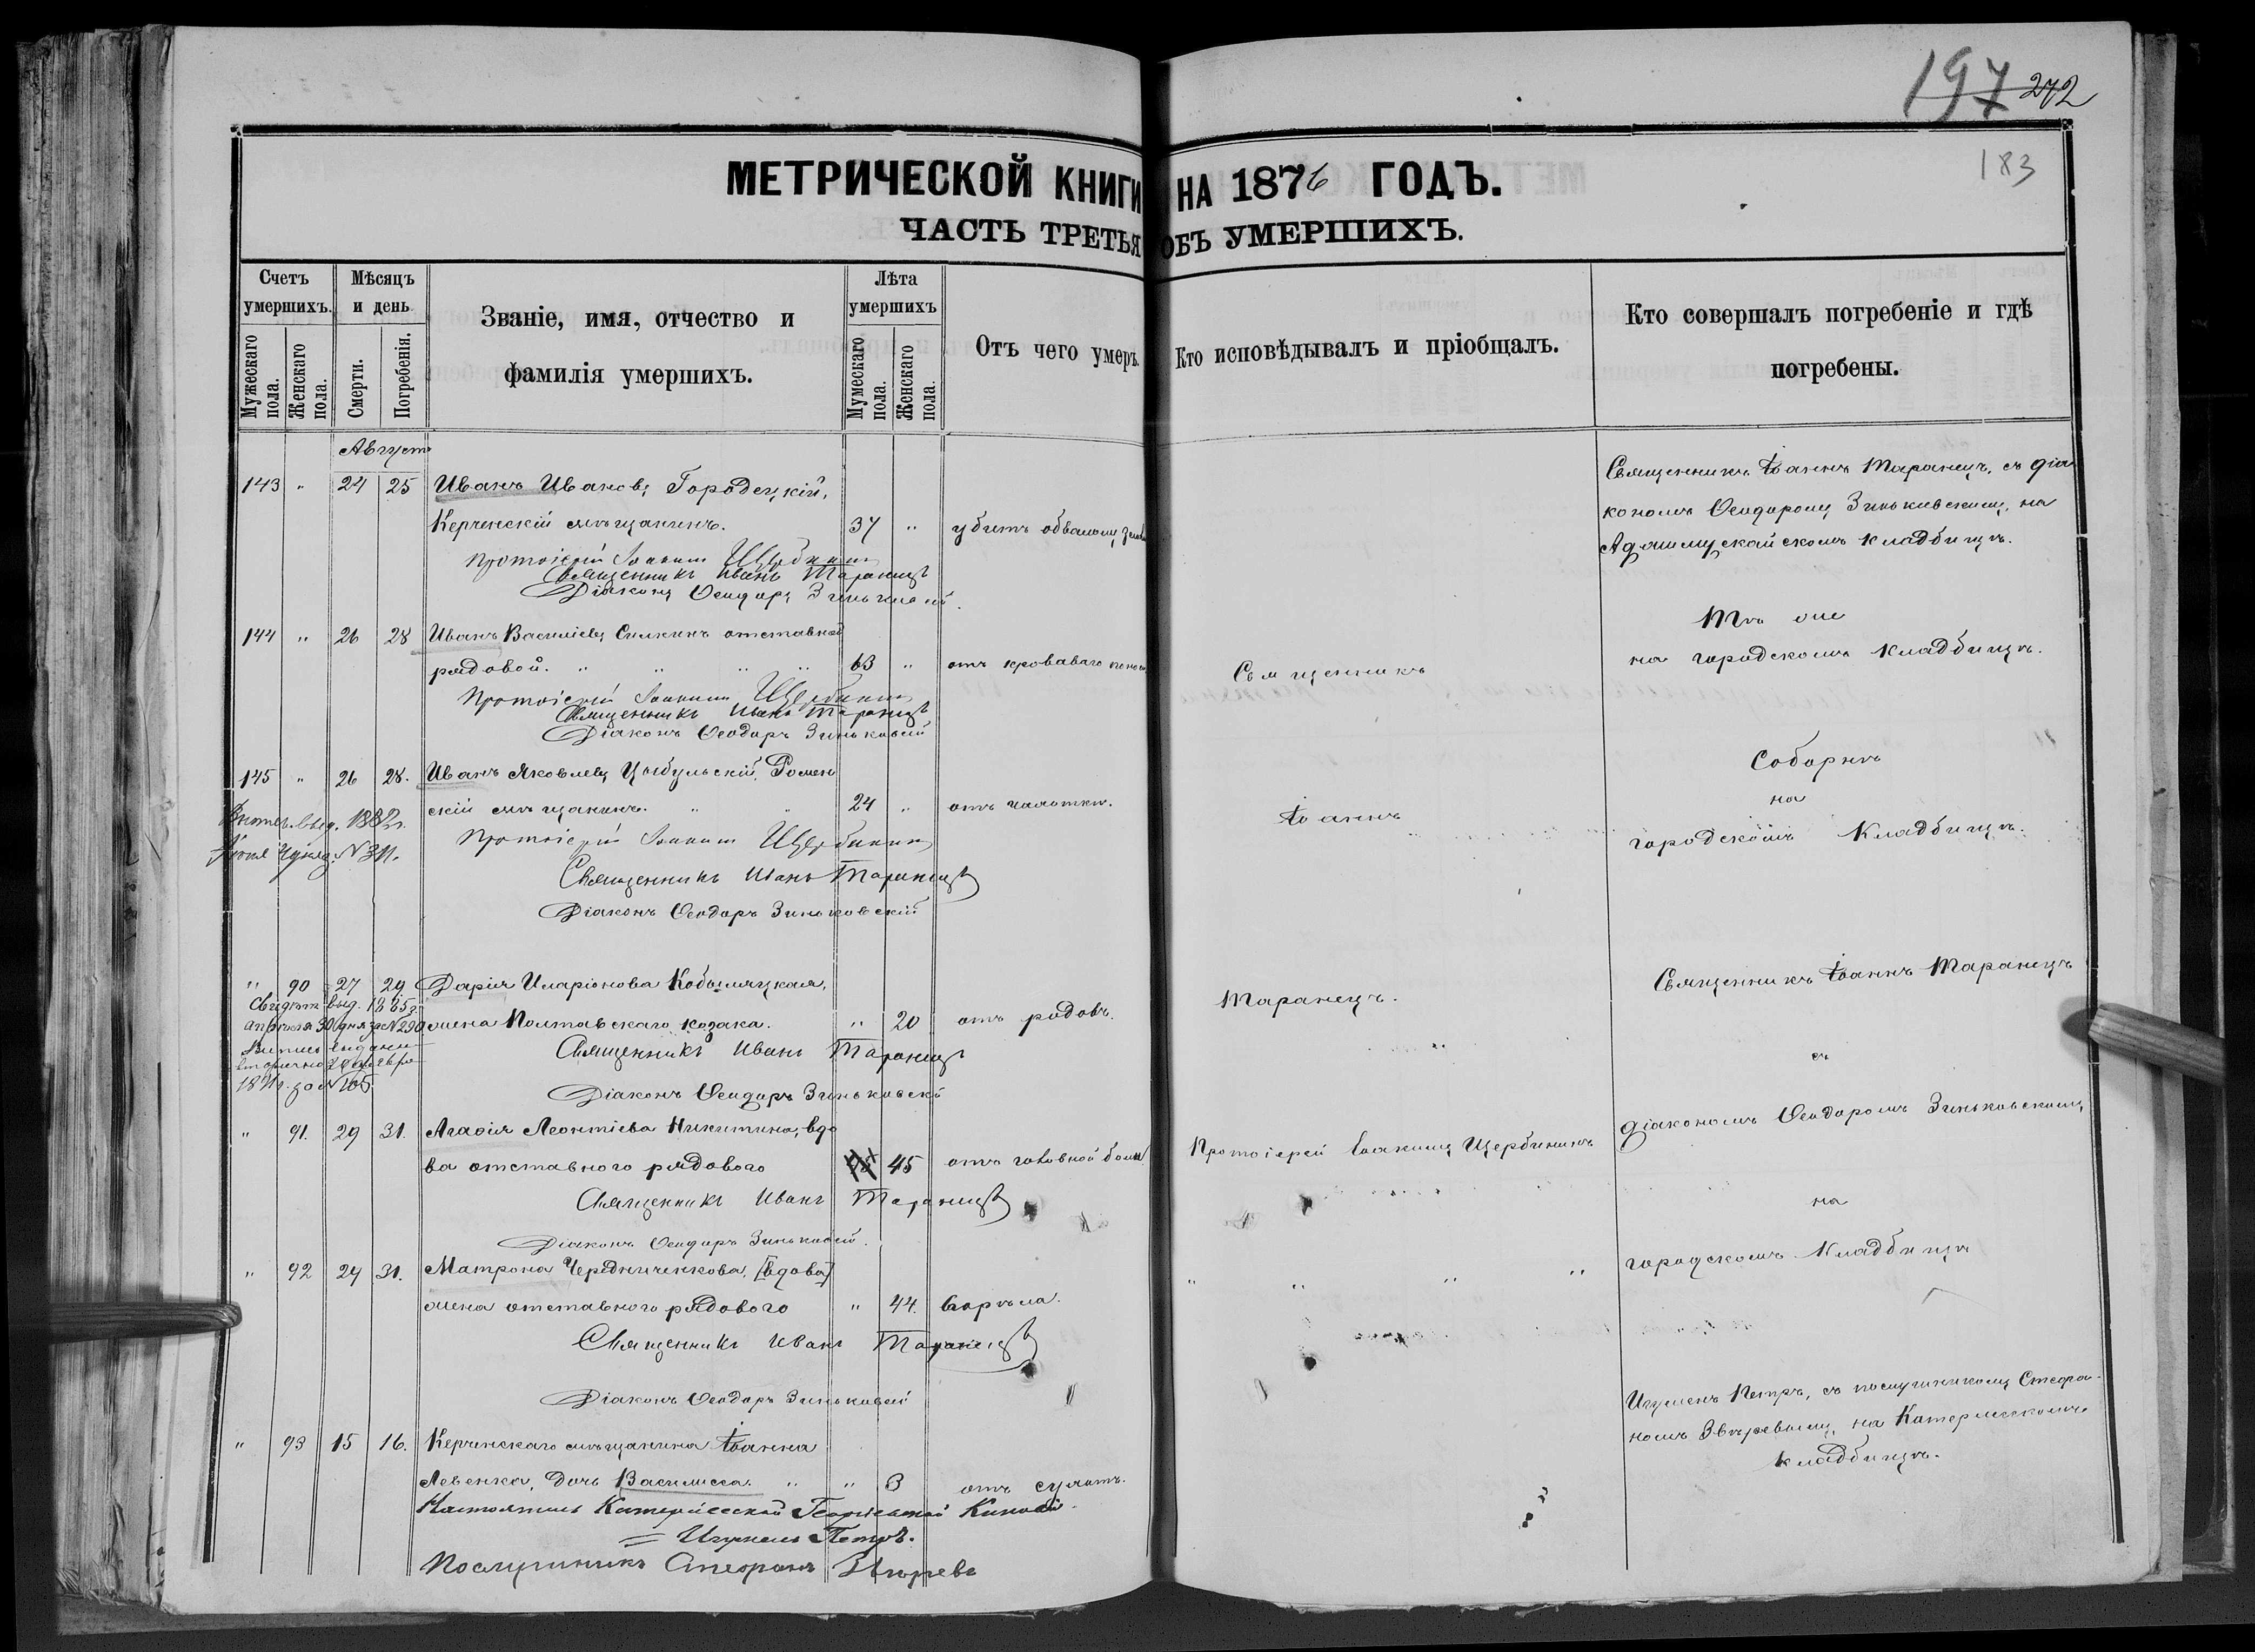 197 272
183
МЕТРИЧЕСКОЙ КНИГИ НА 1876 ГОДЪ.
ЧАСТЬ ТРЕТЬЯ ОБЪ УМЕРШИХЪ.
Счетъ умершихъ.
Мужескаго пола.
Женскаго пола.
Мѣсяцъ и день
Смерти.
Погребенія.
Званіе, имя, отчество и
фамилія умершихъ.
Лѣта умершихъ
Мумескаго пола.
Женскаго пола.
Отъ чего умеръ.
Кто исповѣдывалъ и пріобщалъ.
Кто совершалъ погребеніе и гдѣ
погребены.
Августъ
143 " 24 25 Иванъ Ивановъ Городецкій,
Керченскій мѣщанинъ. 37 " убитъ обваломъ
Протоіерей Іоакимъ Щербининъ
Священникъ Иванъ Таранецъ
Діаконъ Ѳеодоръ Зиньковскій.
Священникъ Іоаннъ Таранецъ, съ діа
кономъ Ѳеодоромъ Зиньковскимъ, на
Аджимушкайскомъ кладбищѣ.
144 " 26 28 Иванъ Васильевъ отставной
рядовой. " " " " 63 " отъ кроваваго
Протоіерей Іоакимъ Щербининъ
Священникъ Иванъ Таранецъ
Діаконъ Ѳеодоръ Зиньковскій
Священникъ
Тѣ же
на городскомъ кладбищѣ.
145 " 26 28. Иванъ Яковлевъ Цыбульскій, Ромен
скій мѣщанинъ. " " 24 " отъ чахотки.
выд. 1882г.
Іюня № 311.
Протоіерей Іоакимъ Щербининъ
Священникъ Иванъ Таранецъ
Діаконъ Ѳеодоръ Зиньковскій
Іоаннъ
Соборнѣ
на
городскомъ кладбищѣ.
" 90 27 29. Дарія Иларіонова Кобыляцкая,
жена Полтавскаго козака. " 20 отъ родовъ.
Свидѣт. выд. 1885г.
апрѣля 30 дня за № 290
вторично
за № 105
Священникъ Иванъ Таранецъ
Діаконъ Ѳеодоръ Зиньковскій
Таранецъ.
Священникъ Іоаннъ Таранецъ
съ
" 91. 29 31. Агафія Леонтіева Никитина, вдо
ва отставного рядового 45 отъ головной боли
Священникъ Иванъ Таранецъ
Діаконъ Ѳеодоръ Зиньковскій.
Протоіерей Іоакимъ Щербининъ
діакономъ Ѳеодоромъ Зиньковскимъ
на
" 92 29 31. Матрона Чередниченкова, [вдова]
жена отставного рядового " 44. Сгорѣла.
Священникъ Иванъ Таранецъ
Діаконъ Ѳеодоръ Зиньковскій
городскомъ кладбищѣ
" 93 15 16. Керченскаго мѣщанина Іоанна
Левенка, дочь Василисса. " " 3 отъ сухотъ.
Настоятель Катерлесской Георгіевской Киновіи
Игуменъ Петръ.
Послушникъ Стефанъ Звѣревъ
Игуменъ Петръ, съ послушникомъ Стефа
номъ Звѣревымъ, на Катерлесскомъ
кладбищѣ.